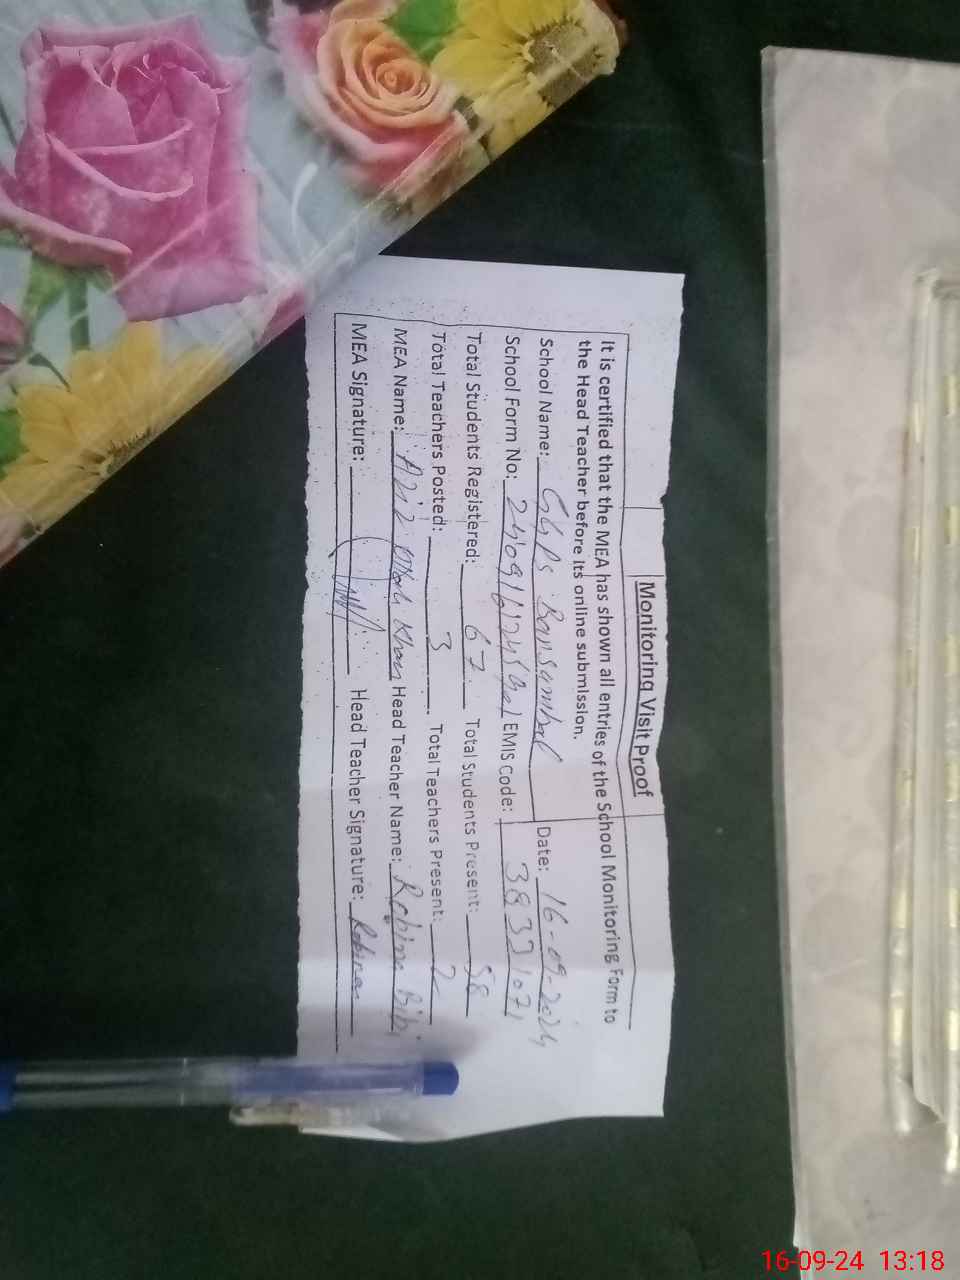 Monitoring Visit Proof
It is certified that the MEA has shown all entries of the School Monitoring Form to
the Head Teacher before its online submission.
School Name: GGPS Date: 16-09-2024
School Form No: EMIS Code: 38331071
Total Students Registered: 67 Total Students Present: 58
Total Teachers Posted: 3 Total Teachers Present: 2
MEA Name: Khan Head Teacher Name: Robina Bibi
MEA Signature: Head Teacher Signature: Robina
16-09-24 13:18